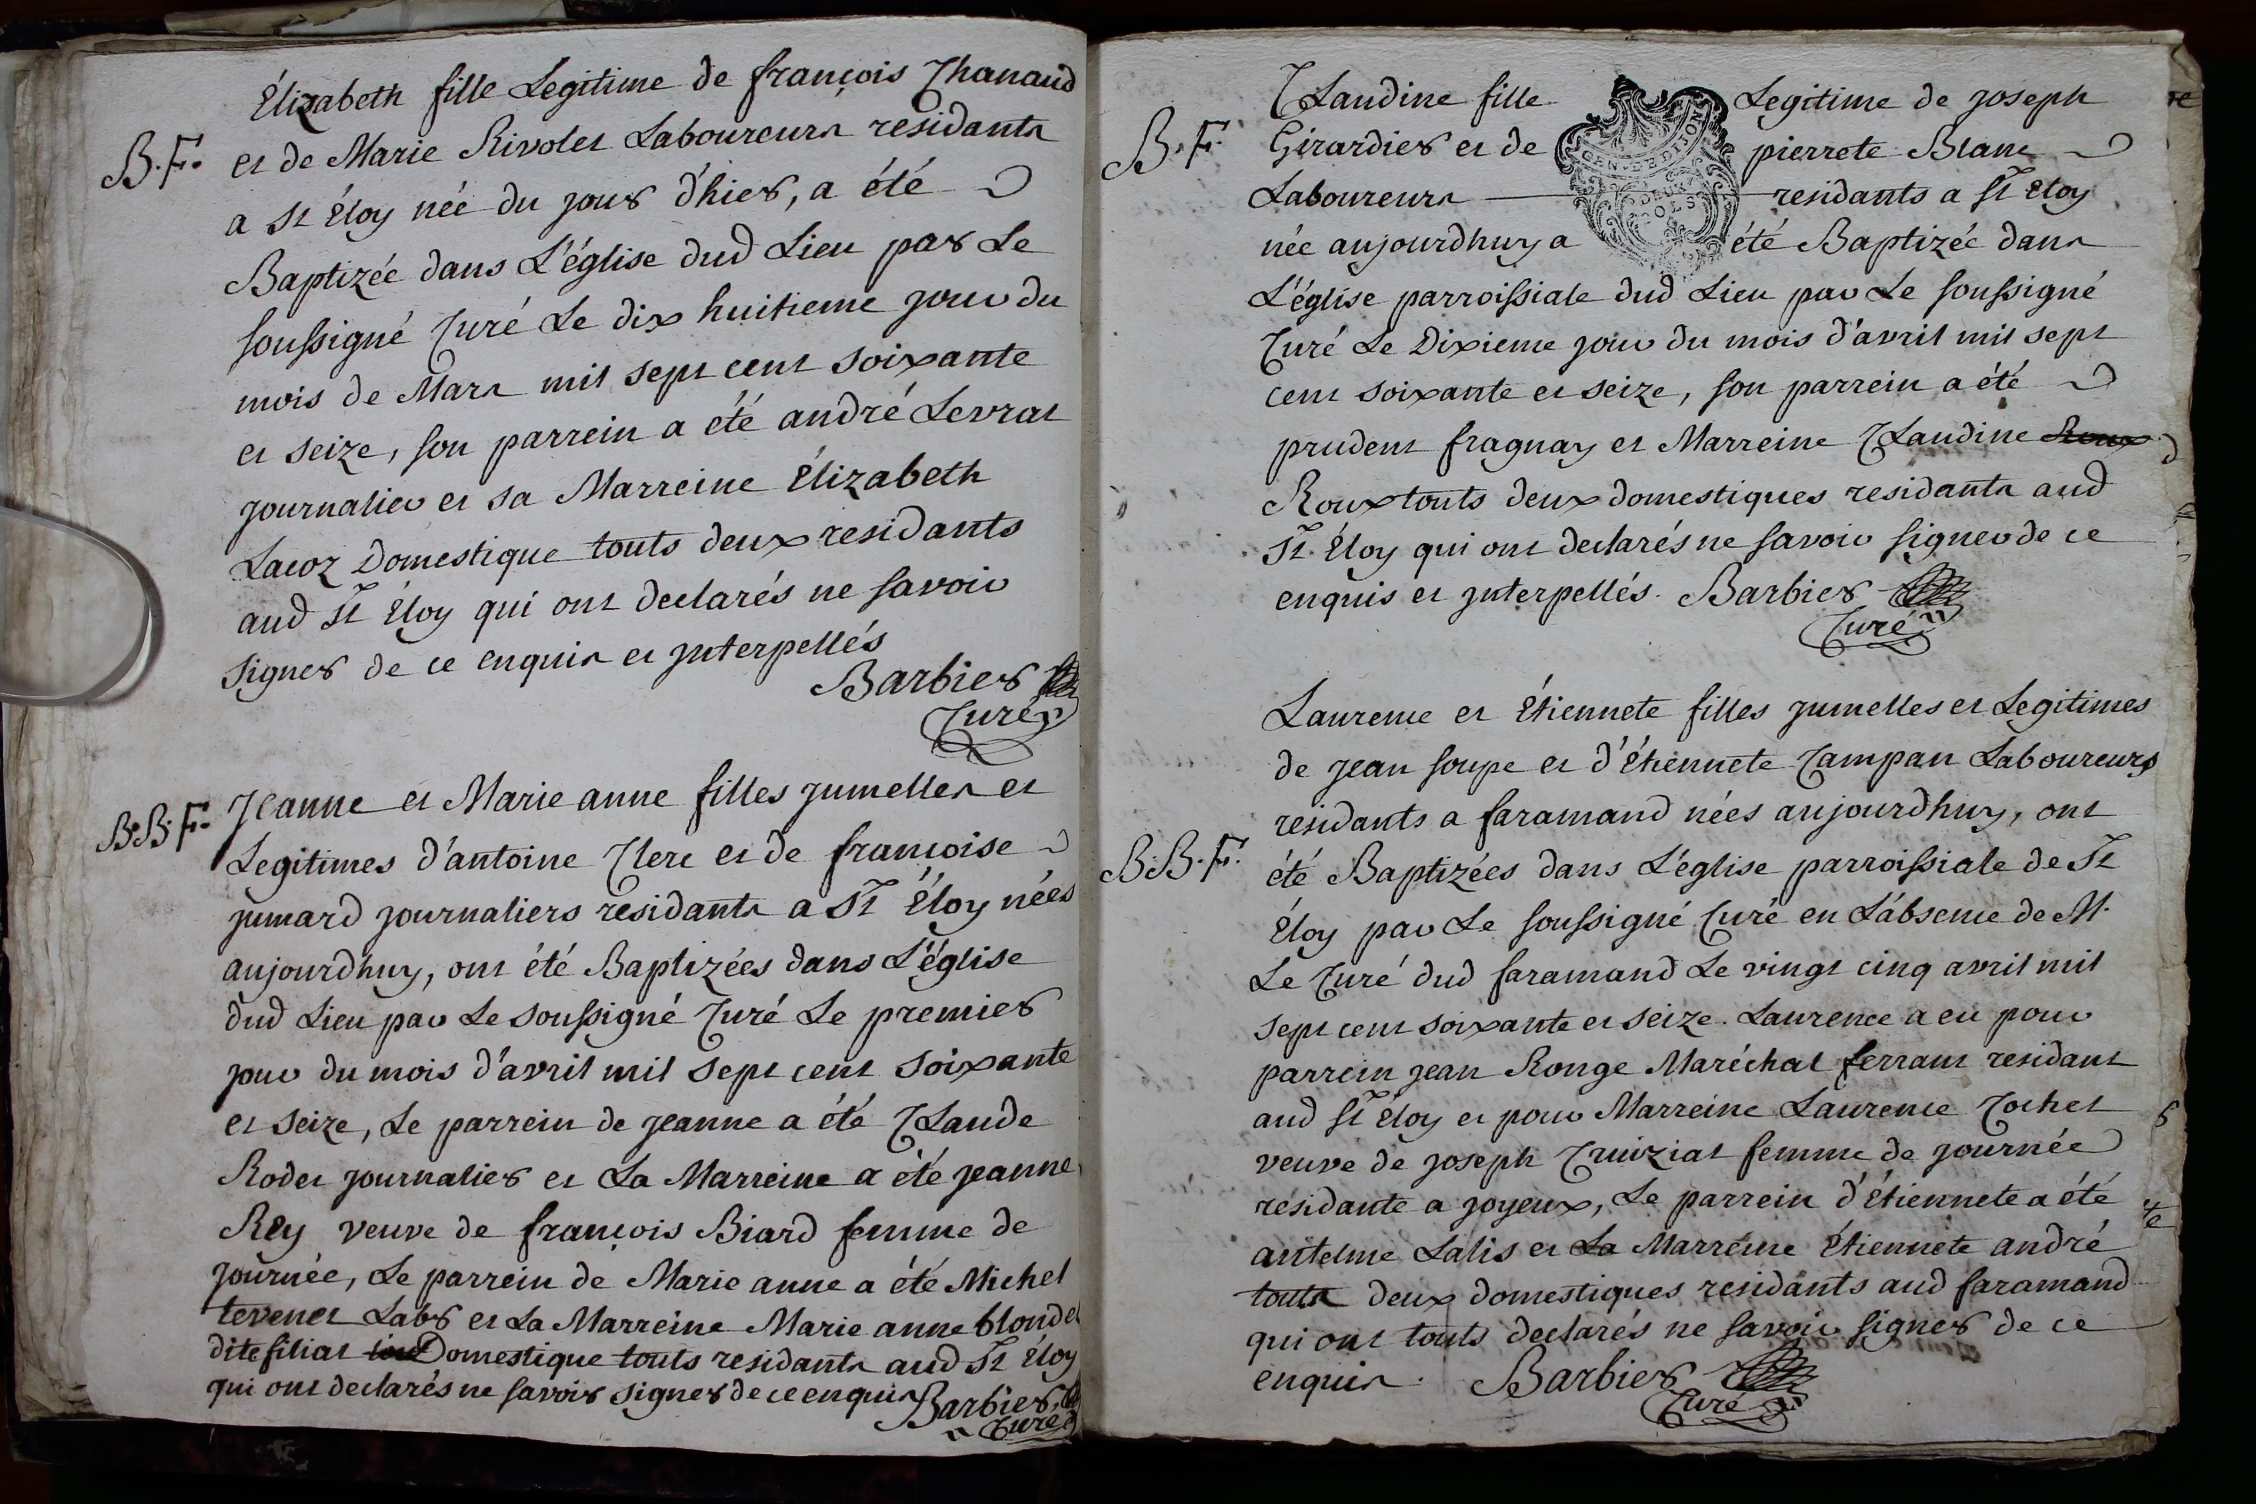 Élizabeth fille Legitime de françois Chanaud
B. F. et de Marie Rivolet Laboureurs residants
a St Éloy née du jour d'hier, a été
Baptizée dans L'église dud Lieu par Le
soussigné Curé Le dix huitieme jour du
mois de Mars mil sept cent soixante
et seize, son parrein a été andré Levrat
journalier et sa Marreine Élizabeth
Lacoz Domestique touts deux residants
aud St Éloy qui ont declarés ne savoir
signer de ce enquis et interpellés
Barbier
Curé
Jeanne et Marie anne filles jumelles et
B. B. F. Legitimes d'antoine Clerc et de françoise
jumard journaliers residants a St Éloy nées
aujourdhuy, ont été Baptizées dans L'église
dud Lieu par Le soussigné Curé Le premier
jour du mois d'avril mil sept cent soixante
et seize, Le parrein de jeanne a été Claude
Rodet journalier et La Marreine a été jeanne
Rey veuve de françois Biard femme de
journée, Le parrein de Marie anne a été Michel
tevenet Labr et La Marreine Marie anne blondel
dite filiat Domestique touts residants aud St Éloy
qui ont declarés ne savoir signer de ce enquis
Barbier
Curé
Claudine fille Legitime de joseph
B. F. Girardier et de pierrete Blanc
GEN. DE DIJON
DEUX SOLS
Laboureurs residants a St Eloy
née aujourdhuy a été Baptizée dans
L'église parroissiale dud Lieu par Le soussigné
Curé Le Dixieme jour du mois d'avril mil sept
cent soixante et seize, son parrein a été
prudent fragnay et Marreine Claudine Roux
Roux touts deux domestiques residants aud
St. Éloy qui ont declarés ne savoir signer de ce
enquis et interpellés. Barbier
Curé
Laurence et Étiennete filles jumelles et Legitimes
de jean soupe et d'Étiennete Campan Laboureurs
residants a faramand nées aujourdhuy, ont
B. B. F. été Baptizées dans L'église parroissiale de St
Éloy par Le soussigné Curé en L'absence de M.
Le Curé dud faramand Le vingt cinq avril mil
sept cent soixante et seize. Laurence a eu pour
parrein jean Ronge Maréchal ferrant residant
aud St Éloy et pour Marreine Laurence Cochet
veuve de joseph Cruiziat femme de journée
residante a joyeux, Le parrein d'Étiennete a été
antelme Lalis et La Marreine Étiennete andré
touts deux domestiques residants aud faramand
qui ont touts declarés ne savoir signer de ce
enquis. Barbier
Curé